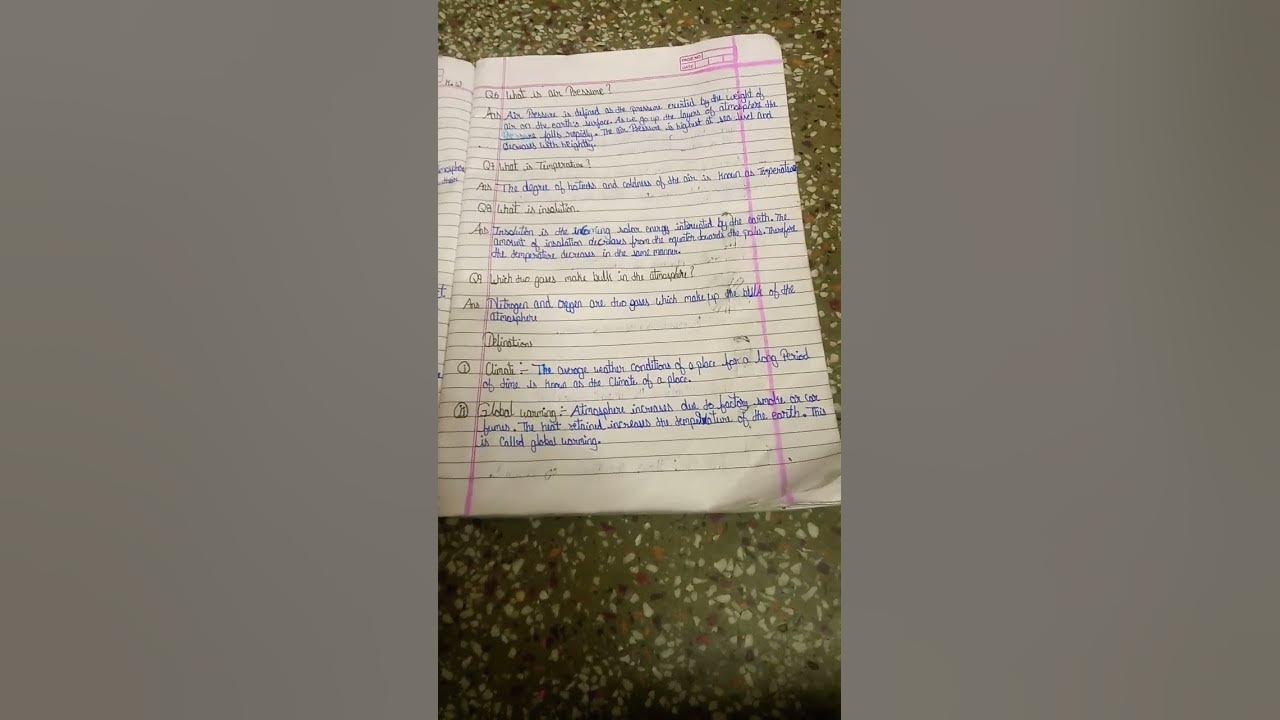 H.W
PAGE NO.
DATE
Q6 What is air Pressure?
Ans Air Pressure is defined as the pressure exerted by the weight of
air on the earth's surface. As we go up the layers of atmosphere the
Pressure falls rapidly. The air Pressure is highest at sea level and
decreases with heightly.
Q7 What is Temperature?
Ans - The degree of hotness and coldness of the air is known as Temperature
Q8 What is insolution
Ans Insolution is the incoming solar energy intercepted by the earth. The
amount of insolation decreases from the equator towards the poles. Therefore
the temperature decreases in the same manner.
Q9 Which two gases make bulk in the atmosphere?
Ans Nitrogen and oxygen are two gases which make up the bulk of the
atmosphere
Definations
(i) Climate :- The average weather conditions of a place for a long Period
of time is known as the Climate of a place.
(ii) Global warming :- Atmosphere increases due to factory smoke or car
fumes. The heat retained increases the temperature of the earth. This
is Called global warming.